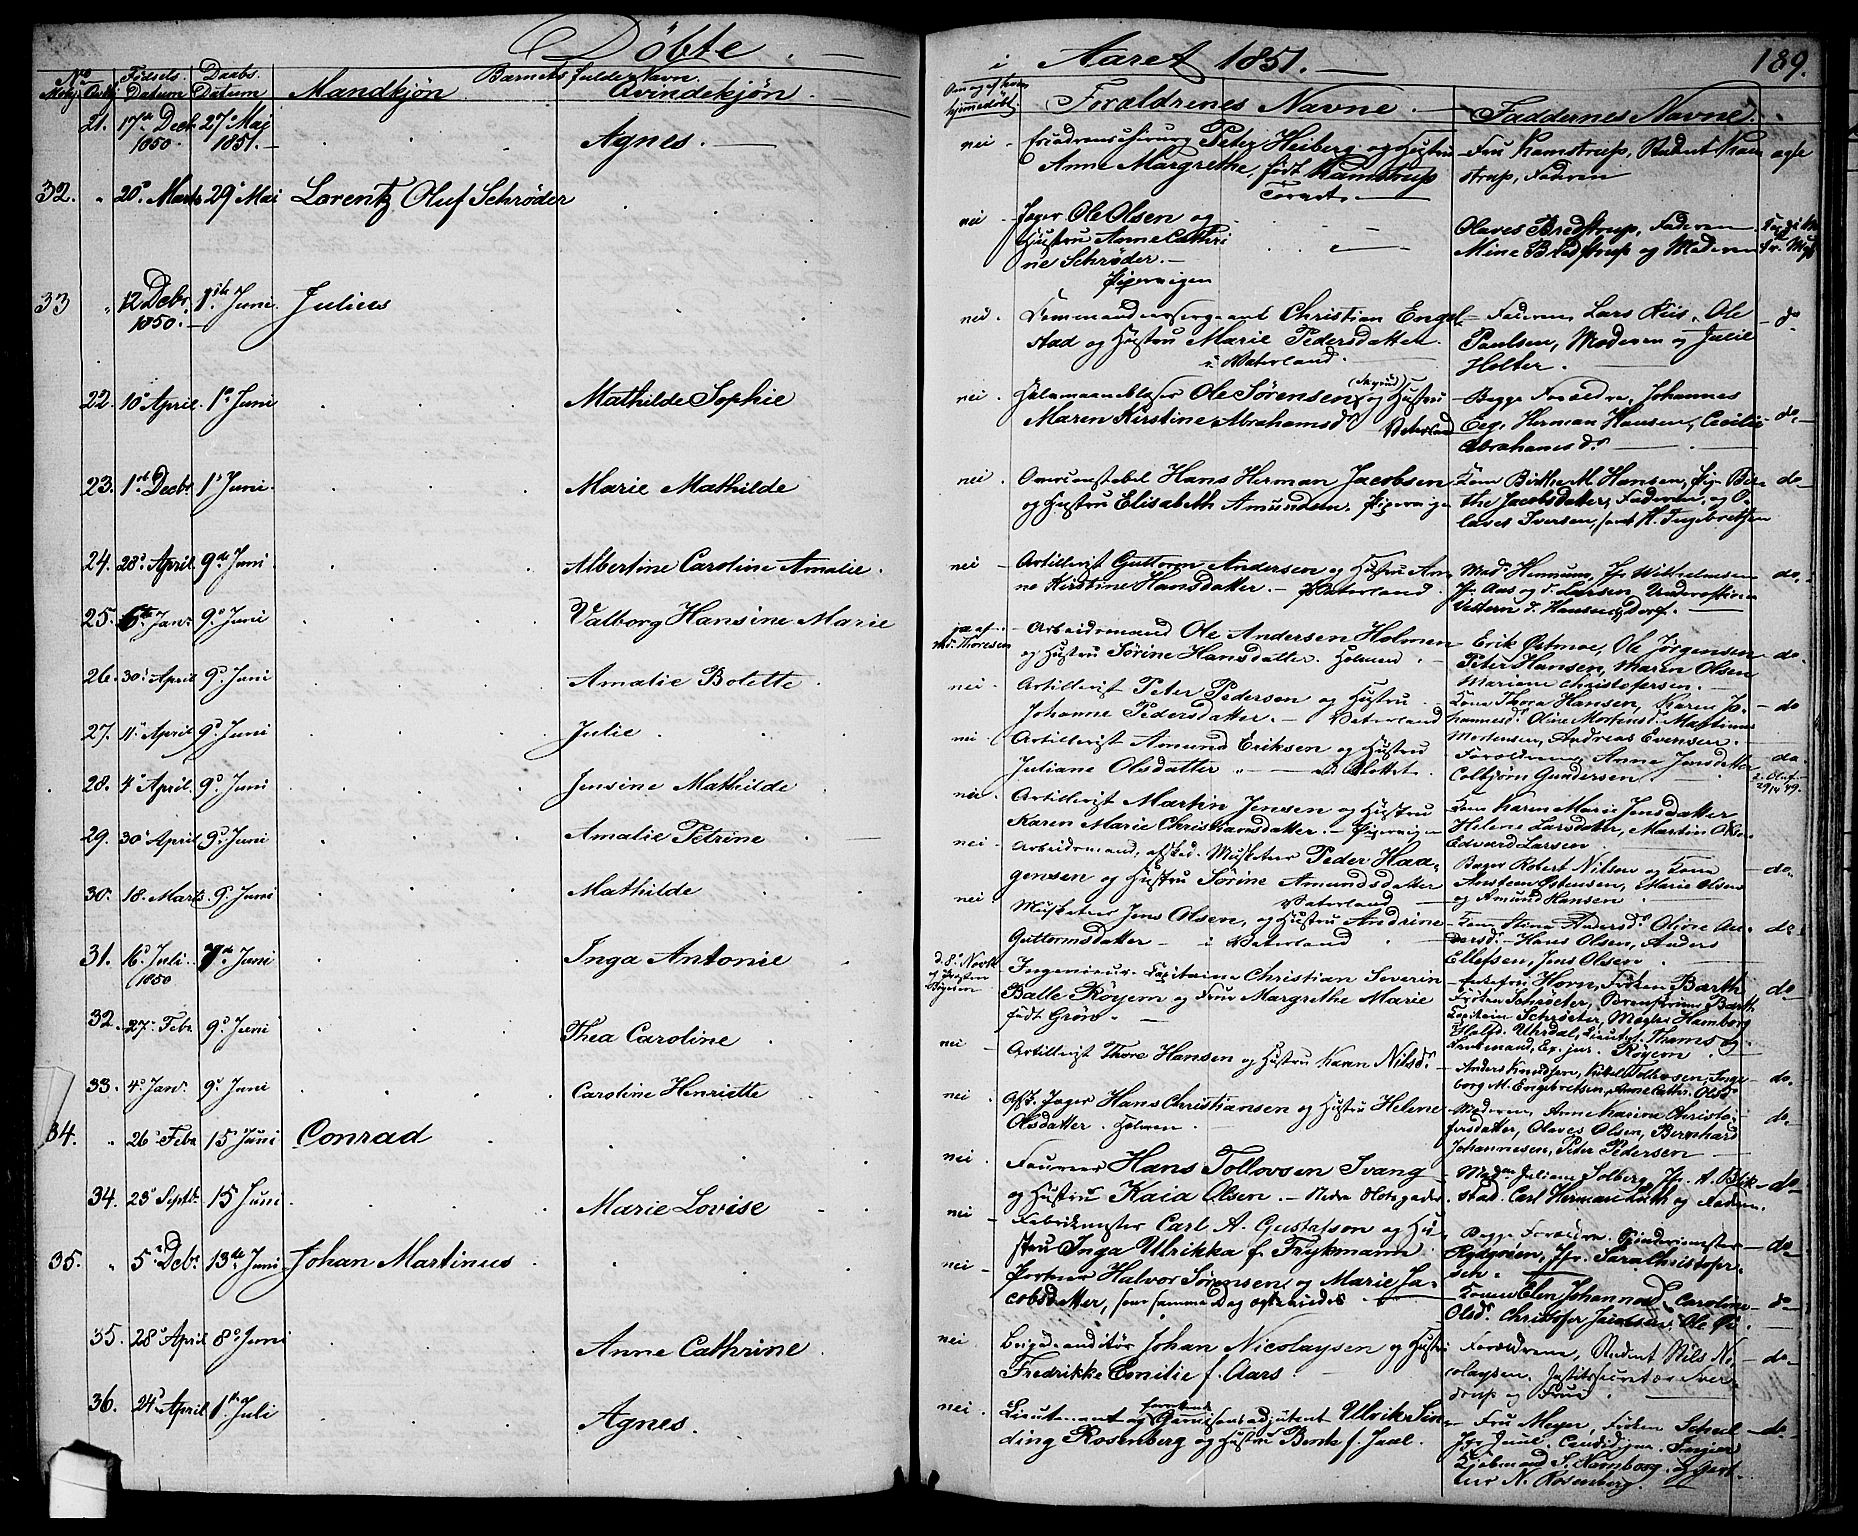 Döbte i Aaret 1851. 189.
No Mckj. Qvkj. Födsels Datum Daabs Datum Barnets fulde Navn. Mandkjön Qvindekjön. Forældrenes Navne Faddernes Navne
21. 17de Decbr 1850. 27. Maj 1851. Agnes. nei Peter Heiberg og Hustru Anne Margrethe, født Kamstrup Fru Kamstrup, Student Kamstrup, Faderen ægte
32. 20. Marts 29 Mai Lorentz Oluf Schrøder nei Jæger Ole Olsen og Hustru Anne Cathrine Schrøder. Pipervigen Olaves Bredstrup, Faderen Mine Bredstrup og Moderen
33 12 Decbr 1850. 1ste Juni Julius nei Christian Engelstad og Hustru Marie Pedersdatter i Vaterland. Faderen, Lars Friis, Ole Paulsen, Moderen og Julie Holter. do
22. 10 April. 1. Juni Mathilde Sophie nei Ole Sørensen og Hustru Maren Kirstine Abrahamsdr Vaterland Begge Forældre, Johannes Eeg, Herman Hansen, Cecilie Abrahamsdr do
23. 1ste Decbr 1. Juni Marie Mathilde nei Overconstabel Hans Herman Jacobsen og Hustru Elisabeth Amundsen. Pipervigen Kone Birthe M. Hansen, Pige Birthe Jacobsdatter, Faderen, og Olaves Iversen, samt H. Ingebretsen do
24. 28. April 9de Juni Albertine Caroline Amalie. nei Artillerist Guttorm Andersen og Hustru Anne Kirstine Hansdatter. Vaterland. Mad. Hennum, Jfr Wilhelmsen Jfr Aas og Larsen, do.
25. 6te Janr 9. Juni Valborg Hansine Marie ja af Thoresen Arbeidsmand Ole Andersen Holmen og Hustru Sørine Hansdatter. Holmen Erik Østmoe, Ole Jørgensen Peter Hansen, Maren Olsen Mariane Christofersen. do.
26. 30 April 9. Juni Amalie Bolette nei. Artillerist Peter Pedersen og Hustru Johanne Pedersdatter. Vaterland Kone Thora Hansen, Karen Johannesdr Oline Mortensdr Martinus Mortensen, Andreas Evensen. do
27. 11 April 9. Juni Julie nei Artillerist Amund Eriksen og Hustru Juliane Olsdatter Slottet. Forældrene, Anne Jonsdatter Colbjørn Gundersen do.
28. 4. April. 9. Juni Jensine Mathilde nei. Artillerist Martin Jensen og Hustru Karen Marie Christiansdatter. Pipervigen Kone Karen Marie Jensdatter Helene Larsdatter, Martin Olsen Edvard Larsen
29. 30 April 9. Juni Amalie Petrine nei Arbeidsmand, afsked. Musketeer Peder Haagensen og Hustru Sørine Amundsdatter Vaterland Bager Robert Nilsen og Kone Anstean Østensen, Marie Olsen og Amund Hansen do.
30. 18. Marts. 9. Juni Mathilde nei Musketeer Jens Olsen, og Hustru Andrine Guttormsdatter i Vaterland Kone Stina Andersdr Oline Andersdr. Hans Olsen, Anders Ellefsen, Jens Olsen do
31. 16. Juli 1850 7de Juni Inga Antonie Ingenieur-Capitaine Christian Severin Balle Røyem og Frue Margrethe Marie født Grøn. Enkefru Horn, Frøken Barth Frøken Schrøeter, Capitain Schrøeter, Hamborg Thams og Røyem do
32. 27. Febr 9. Juni Thea Caroline nei Artillerist Thore Hansen og Hustru Karen Nilsdr. Anders Knudsen, Ingeborg M. Engebretsen, Anne Cathr. Olsdr do.
33. 4. Janr. 9. Juni Caroline Henriette nei Afsk. Jæger Hans Christiansen og Hustru Helene Olsdatter. Holmen Moderen, Anne Karine Christofersdatter, Olaves Olsen, Bernhard Johannesen, Peter Pedersen do.
34. 26. Febr 15 Juni Conrad nei Foureer Hans Tollovsen Svang og Hustru Kaia Olsen. Nedre Slotsgade Madm Juliane Solberg, Jfr. A. Blikstad. Carl Herman Luth og Faderen. do
34. 23. Septbr 15 Juni Marie Lovise nei Fabrikmester Carl A. Gustafson og Hustru Inga Ulrikka f. Frykmann Begge Forældre. Rydgrén, Jfr. Sara Christofersen. do
35. 5. Debr 13de Juni Johan Martinus nei Portner Halvor Sørensen, og Marie Jacobsdatter, som samme Dag ægteviedes Konen Elen Johannesdr, Caroline Olsdr Christofer Jacobsen, Ole do
35. 28. April 8. Juni Anne Cathrine nei Brigadeauditør Johan Nicolaysen og Hustru Fredrikke Emilie f. Aars. Forældrene, Student Nils Nicolaysen. og Frue. do
36. 24. April 1ste Juli Agnes. nei. Lieutenant og Garnisonsadjutant Ulrik Sinding Rosenberg og Hustru f. Juul. Fru Meyer, Frøken Scheel Jfr Juul. Kjøbmand S. Hamborg og N. Rosenberg. do